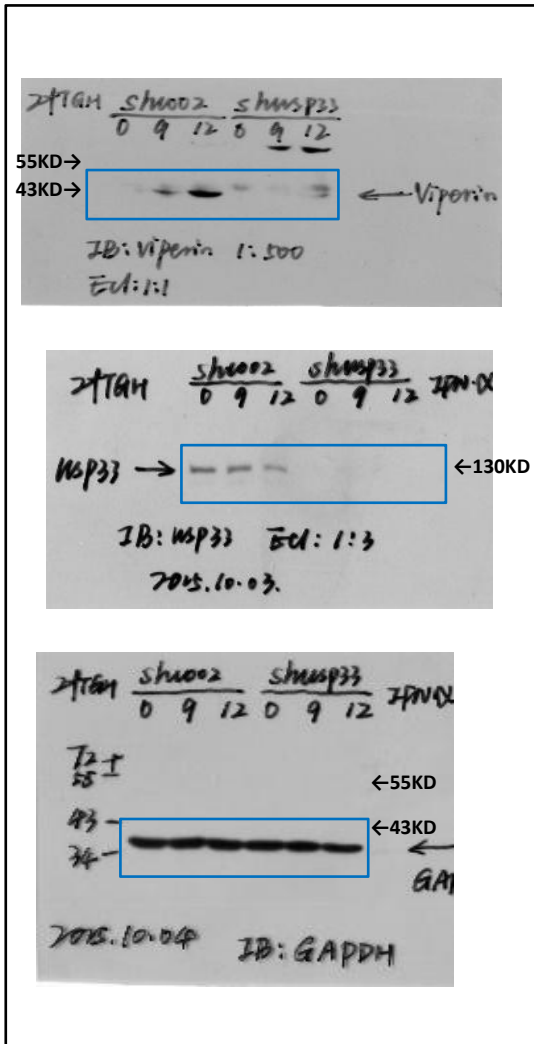 2fTGH shcoo2 shusp33
0 9 12 0 9 12
55KD→
43KD→
← Viperin
IB: Viperin 1:500
Ecl: 1:1
2fTGH shcoo2 shusp33 IFN-α
0 9 12 0 9 12
usp33 →
←130KD
IB: usp33 Ecl: 1:3
2015.10.03.
2fTGH shcoo2 shusp33 IFNα
0 9 12 0 9 12
72
55
←55KD
43
←43KD
34
←
GAP
2015.10.04 IB: GAPDH